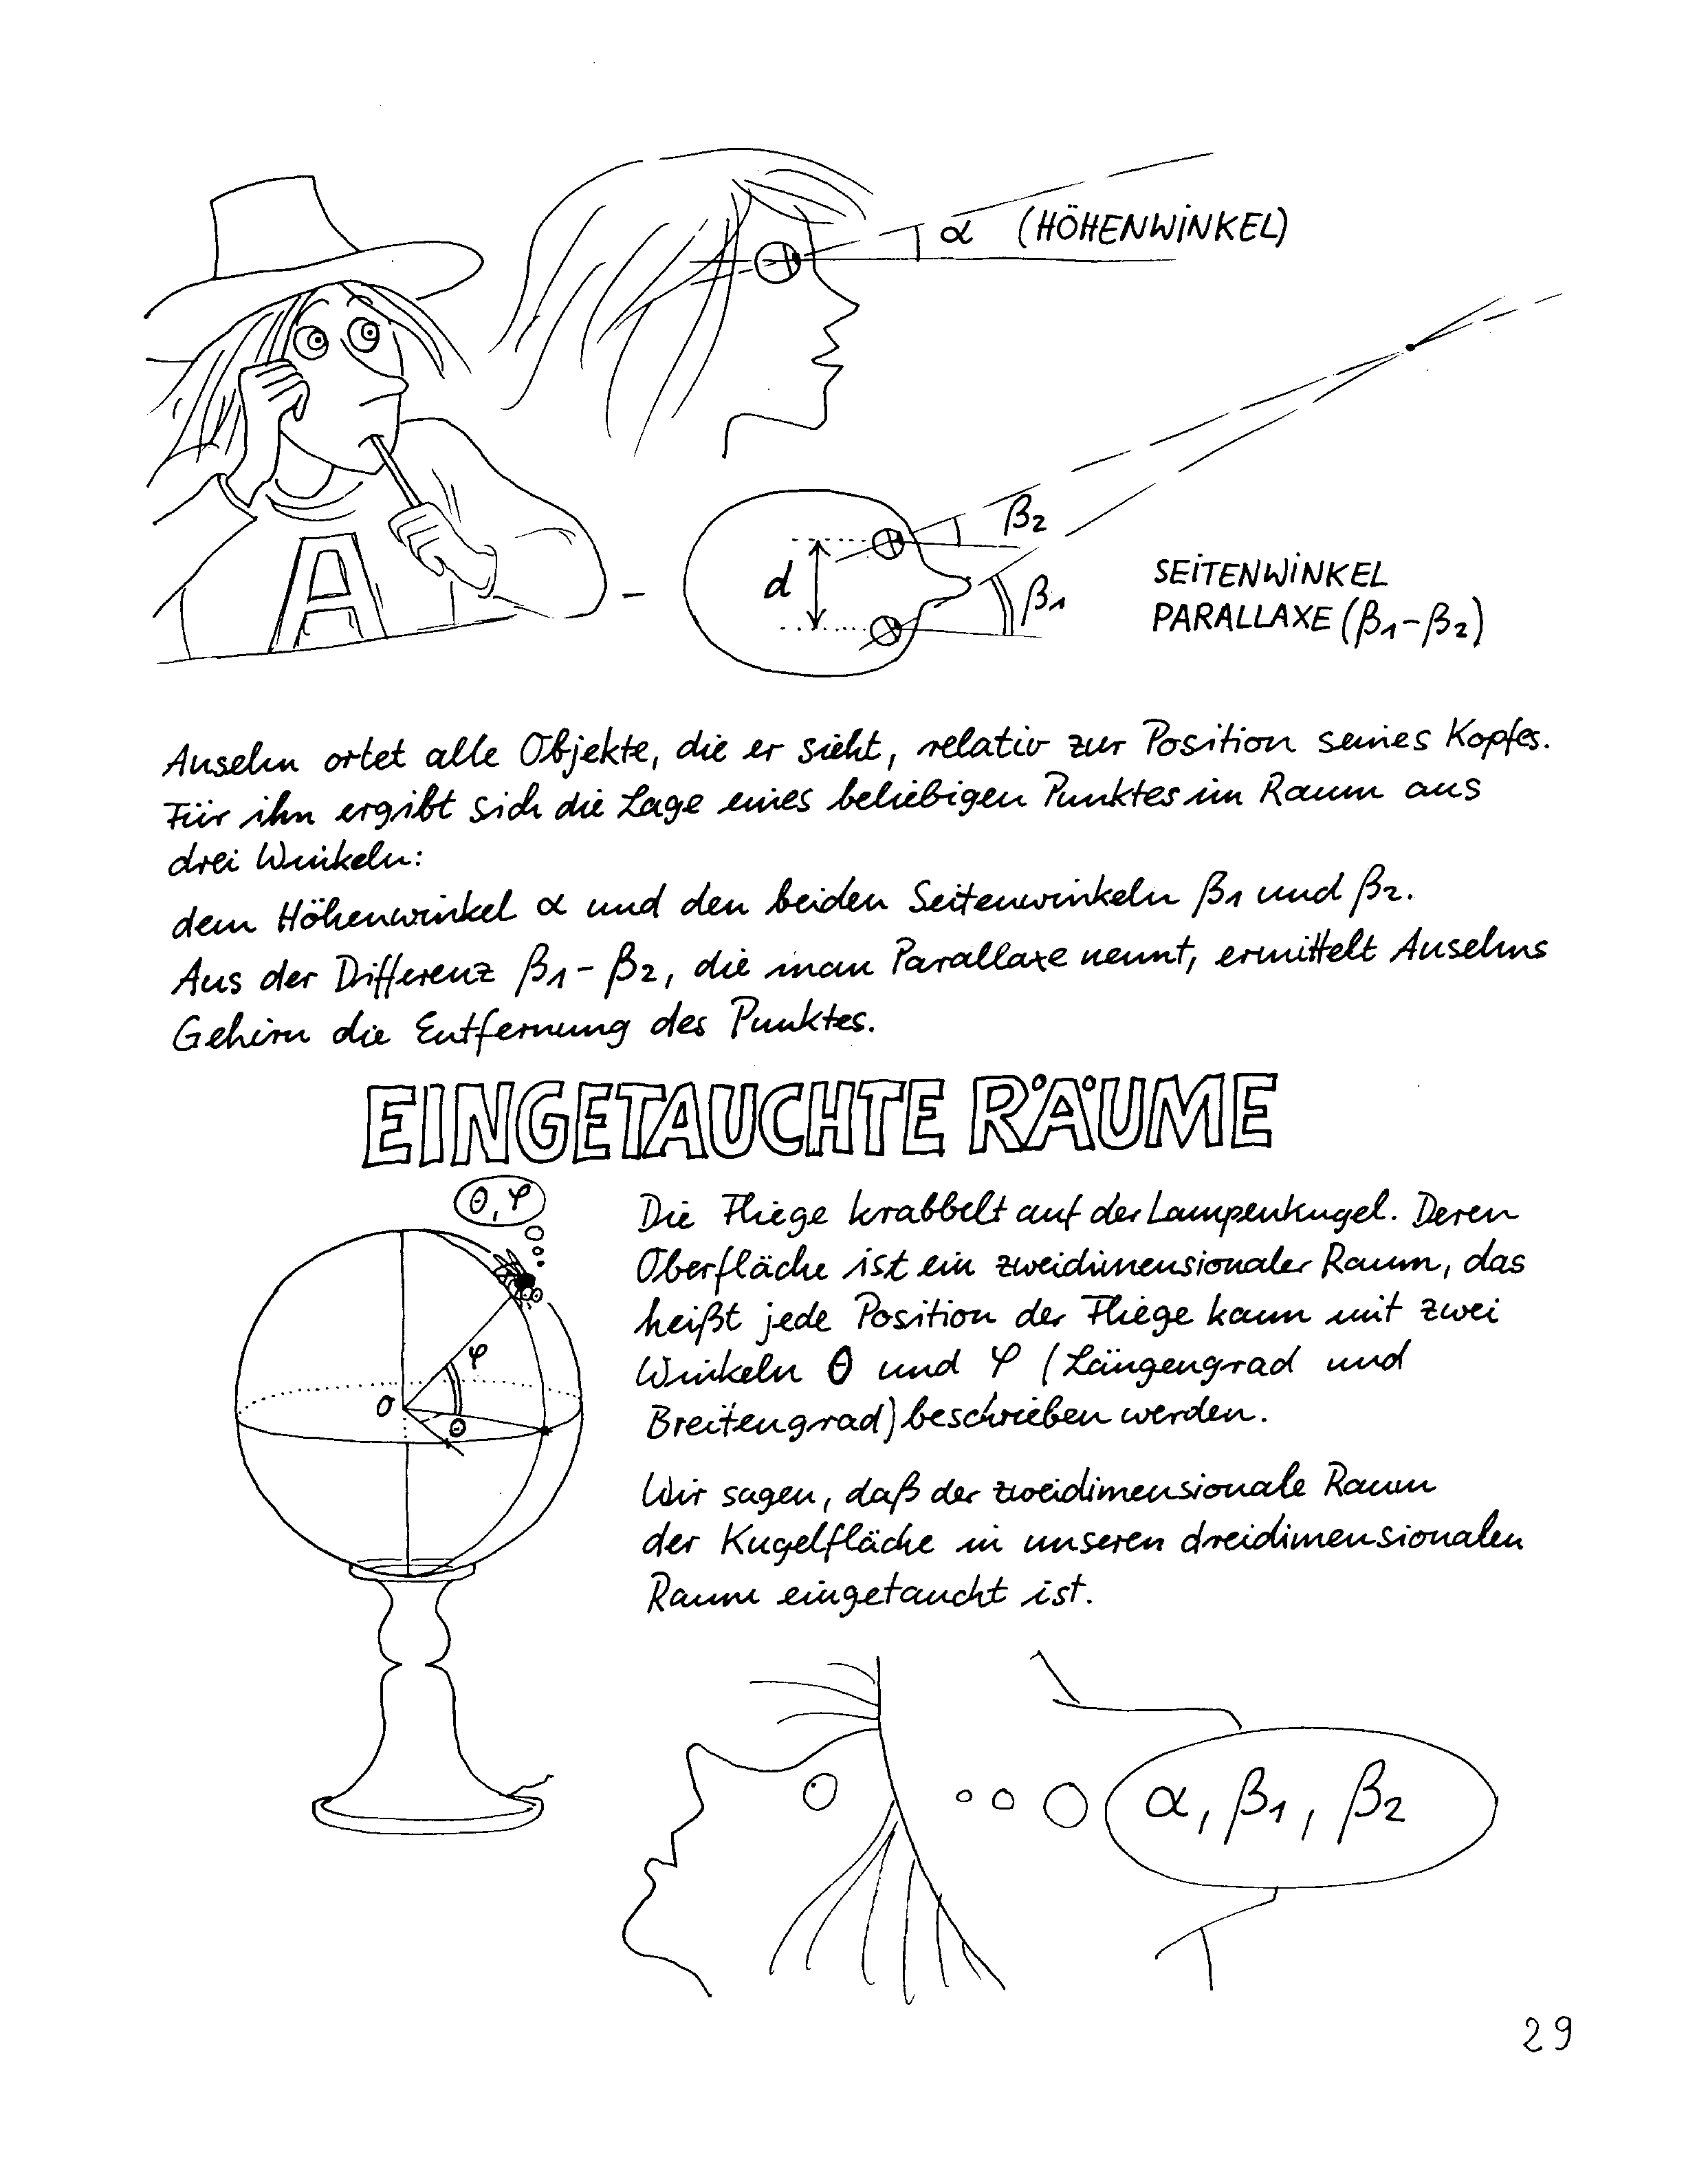 α (HÖHENWINKEL)
β2
d
β1
SEITENWINKEL
PARALLAXE (β1-β2)
A
Anselm ortet alle Objekte, die er sieht, relativ zur Position seines Kopfes.
Für ihn ergibt sich die Lage eines beliebigen Punktes im Raum aus
drei Winkeln:
dem Höhenwinkel α und den beiden Seitenwinkeln β1 und β2.
Aus der Differenz β1-β2, die man Parallaxe nennt, ermittelt Anselms
Gehirn die Entfernung des Punktes.
EINGETAUCHTE RÄUME
θ, φ
Die Fliege krabbelt auf der Lampenkugel. Deren
Oberfläche ist ein zweidimensionaler Raum, das
heißt jede Position der Fliege kann mit zwei
Winkeln θ und φ (Längengrad und
Breitengrad) beschrieben werden.
φ
O
θ
Wir sagen, daß der zweidimensionale Raum
der Kugelfläche in unseren dreidimensionalen
Raum eingetaucht ist.
α, β1, β2
29